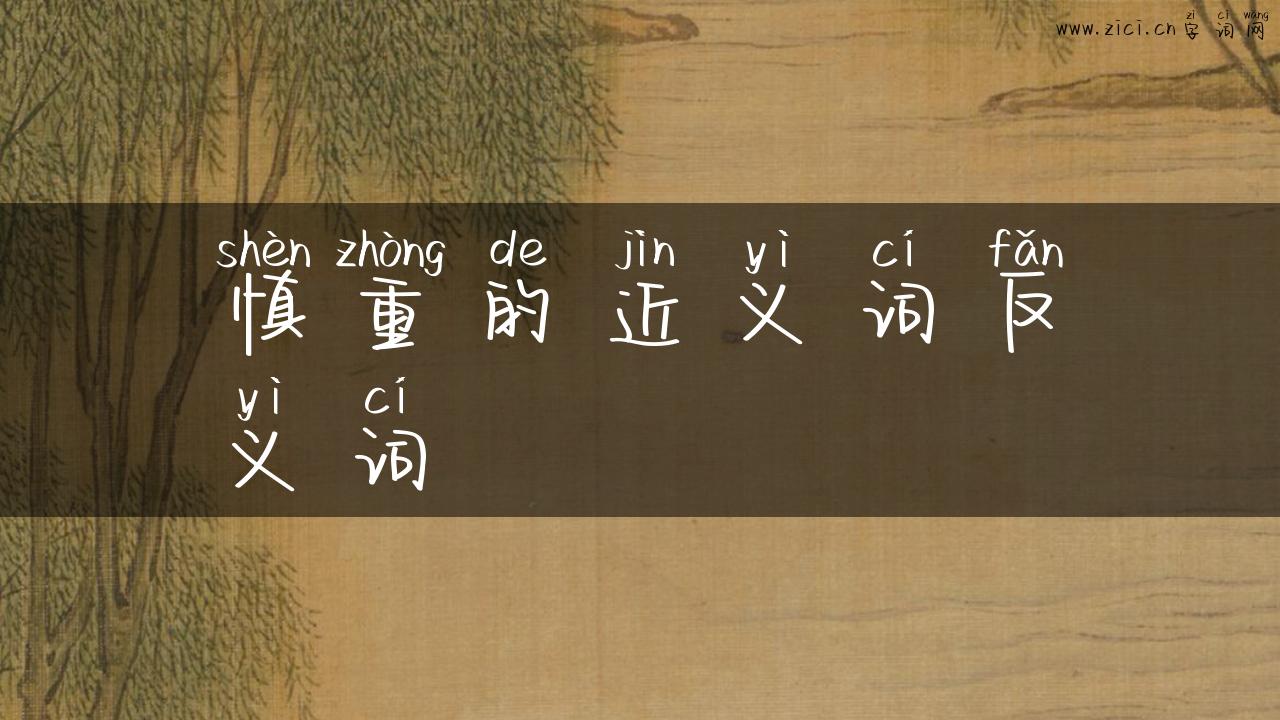 zì cí wǎng
www.zici.cn 字词网
shèn zhòng de jìn yì cí fǎn
慎重的近义词反
yì cí
义词